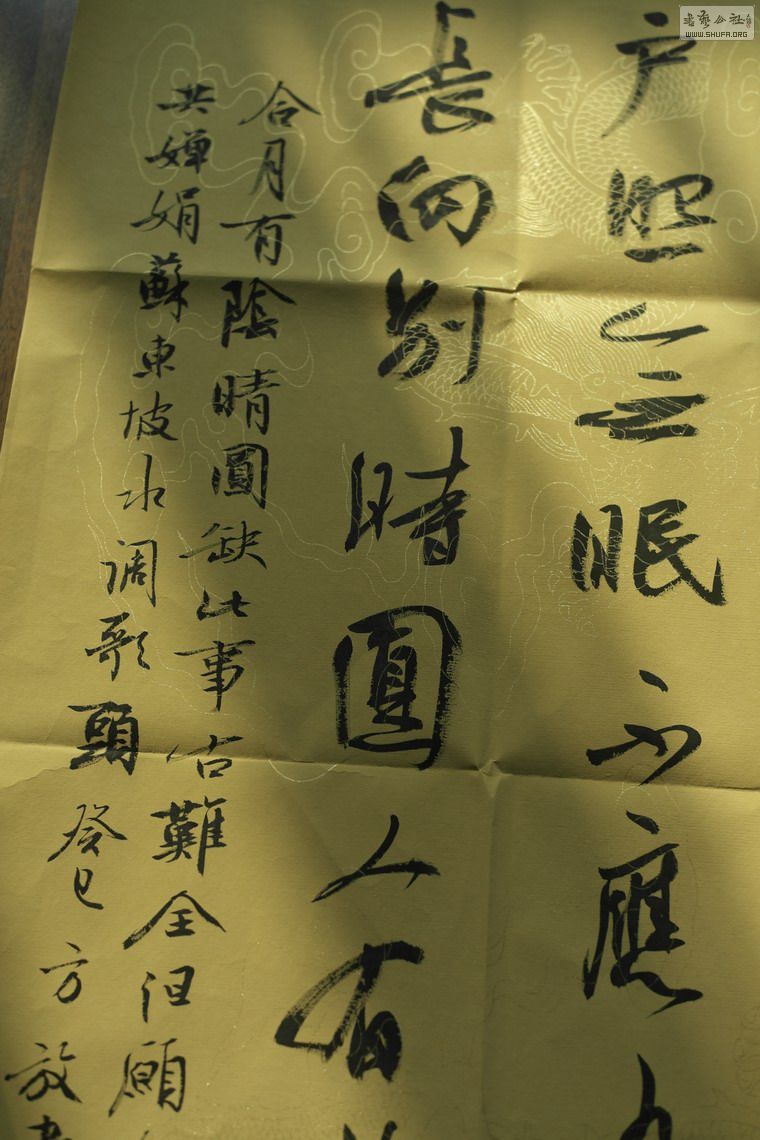 書藝公社
WWW.SHUFA.ORG
户照無眠不應
長向别時圓人有
合月有陰晴圓缺此事古難全但願
共嬋娟蘇東坡水调歌頭癸巳方放